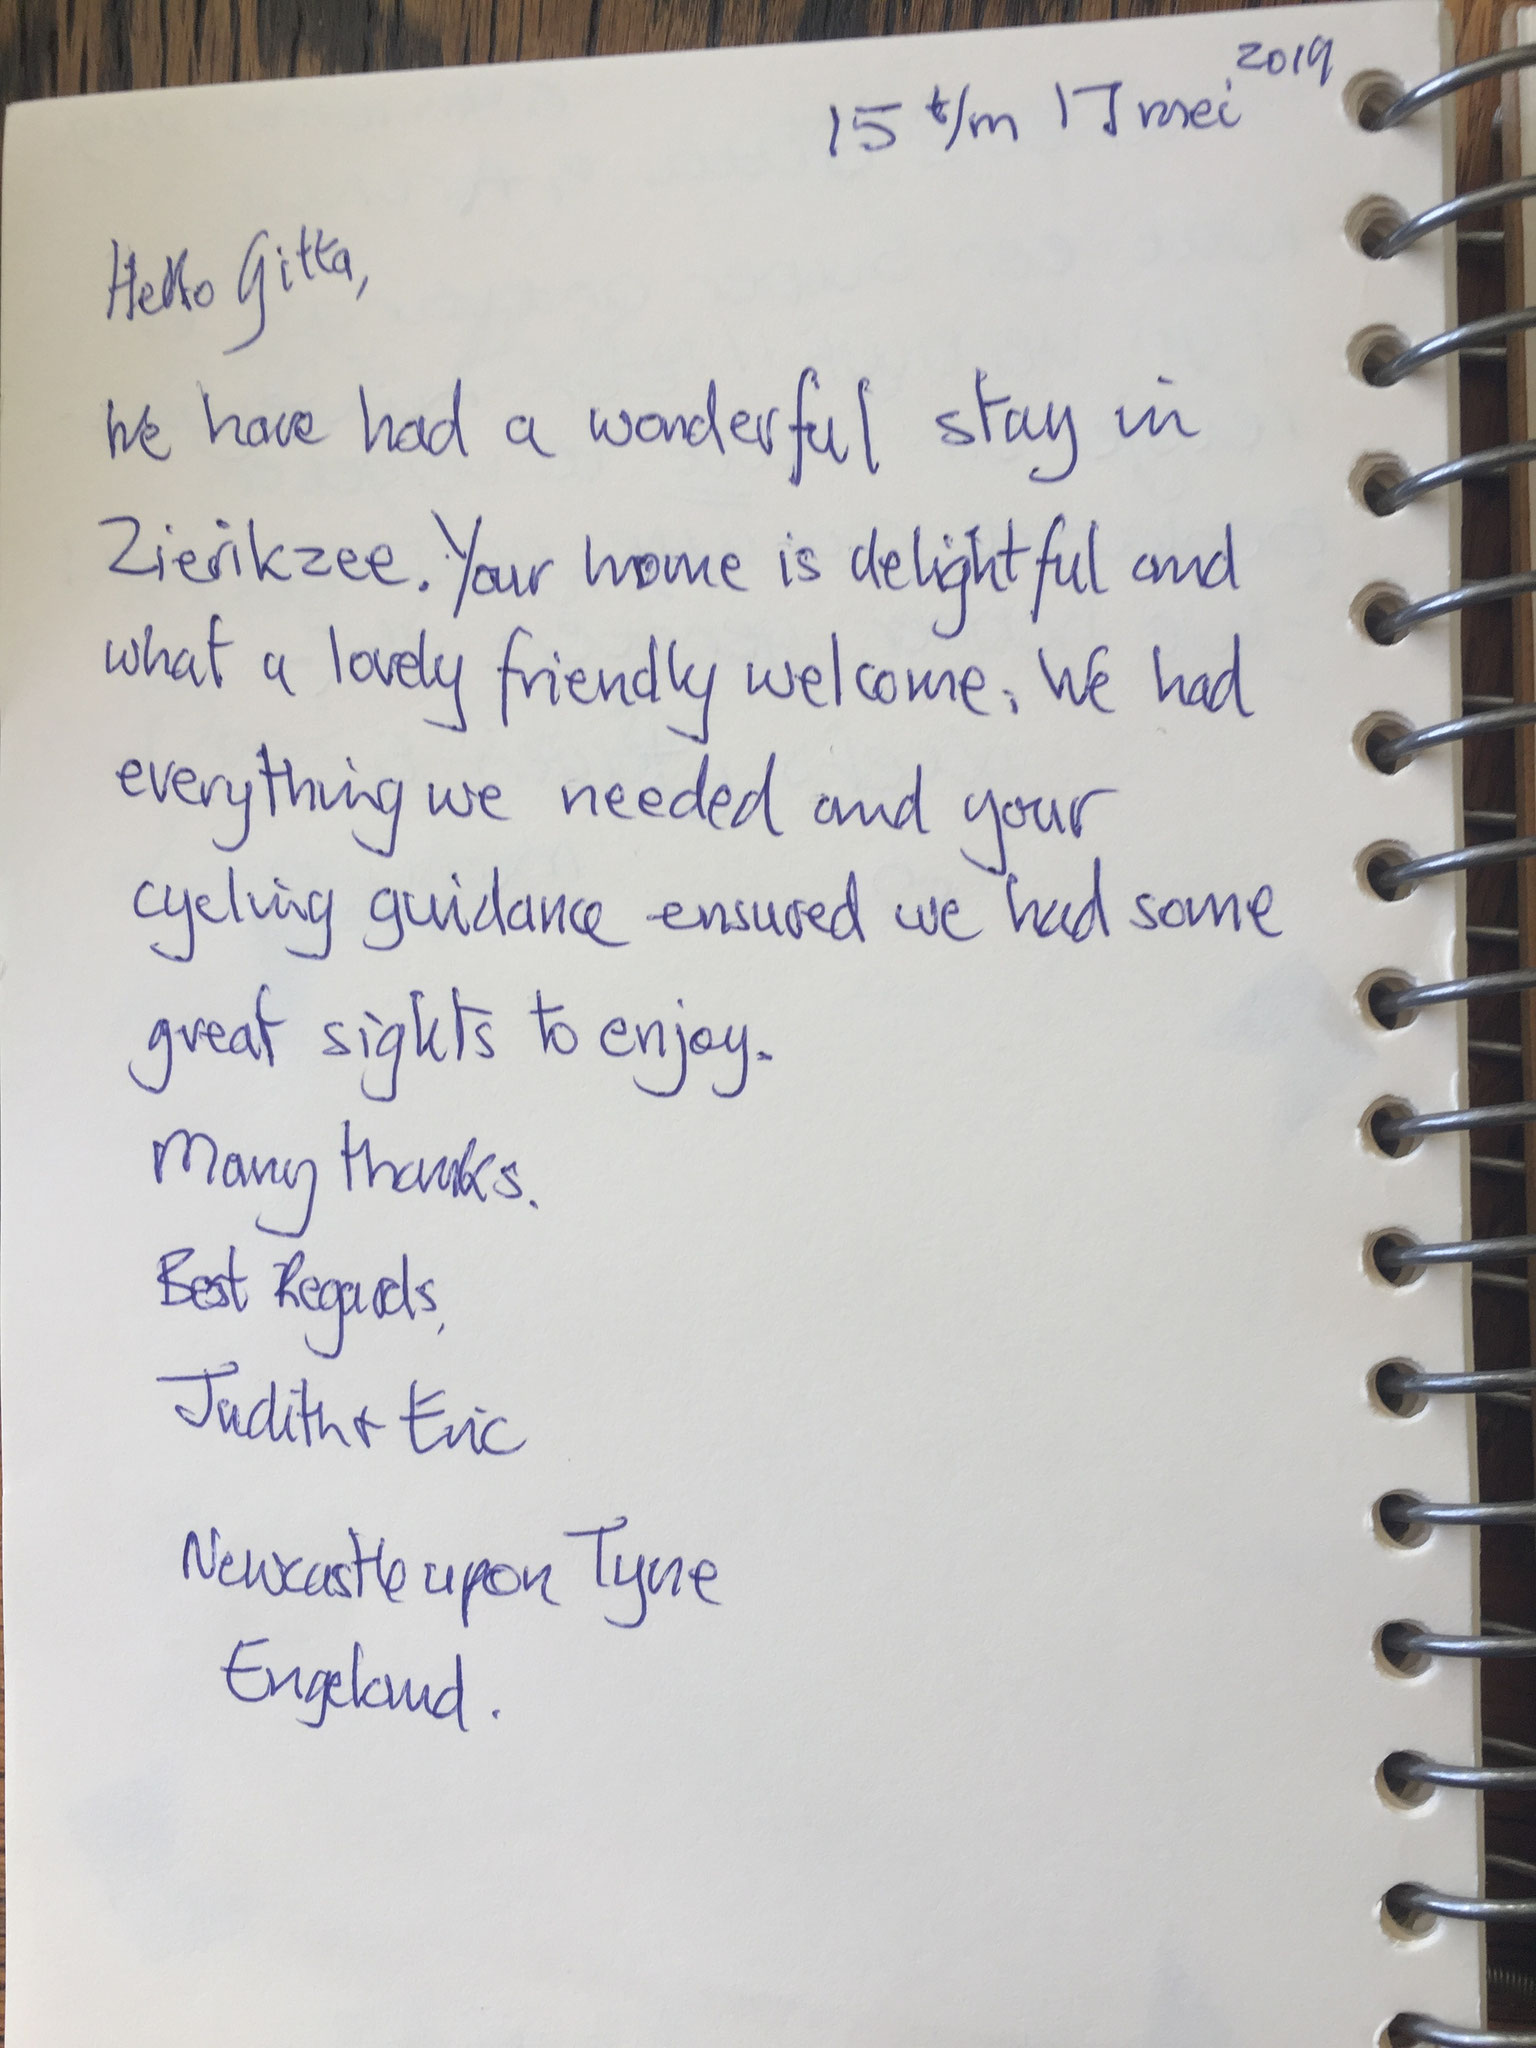 15 t/m 17 mei 2019
Hello Gitta,
We have had a wonderful stay in
Zierikzee. Your home is delightful and
what a lovely friendly welcome. We had
everything we needed and your
cycling guidance ensured we had some
great sights to enjoy.
Many thanks.
Best Regards,
Judith & Eric
Newcastle upon Tyne
Engeland.